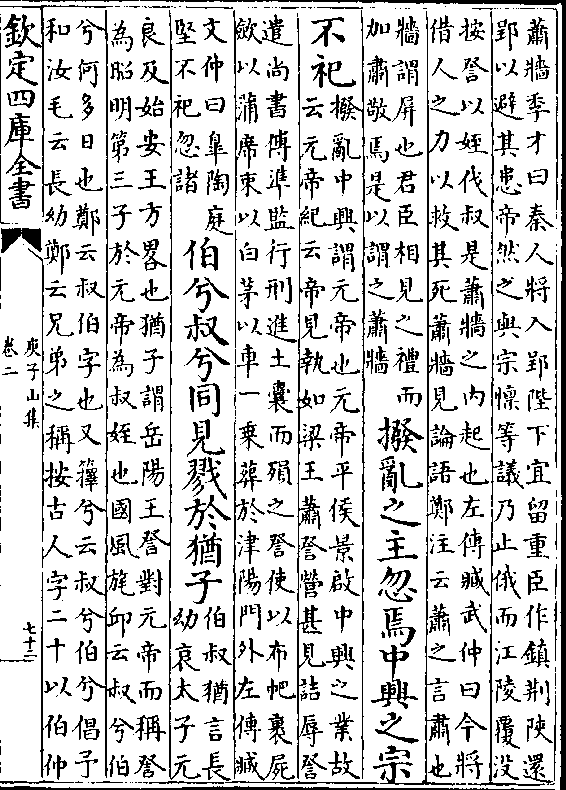 蕭牆季才曰秦人將入郢陛下宜留重臣作鎮荆陜還
郢以避其患帝然之與宗懍等議乃止俄而江陵覆没
按詧以姪伐叔是蕭牆之内起也左傳臧武仲曰今將
借人之力以救其死蕭牆見論語鄭注云蕭之言肅也
牆謂屏也君臣相見之禮而
加肅敬焉是以謂之蕭牆
撥亂之主忽焉中興之宗
不祀
撥亂中興謂元帝也元帝平侯景啟中興之業故
云元帝紀云帝見執如梁王蕭詧營甚見詰辱詧
遣尚書傅準監行刑進土囊而殞之詧使以布帊裹屍
斂以蒲席束以白茅以車一乗葬於津陽門外左傳臧
文仲曰臯陶庭
堅不祀忽諸
伯兮叔兮同見戮於猶子
伯叔猶言長
幼哀太子元
良及始安王方畧也猶子謂岳陽王詧對元帝而稱詧
為昭明第三子於元帝為叔姪也國風旄邱云叔兮伯
兮何多日也鄭云叔伯字也又籜兮云叔兮伯兮倡予
和汝毛云長幼鄭云兄弟之稱按古人字二十以伯仲
欽定四庫全書
庾子山集
卷二
七十二